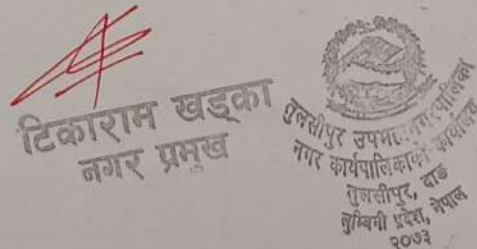 टिकाराम खड्का
नगर प्रमुख
तुलसीपुर उपमहानगरपालिका
नगर कार्यपालिकाको कार्यालय
तुलसीपुर, दाङ
लुम्बिनी प्रदेश, नेपाल
२०७३